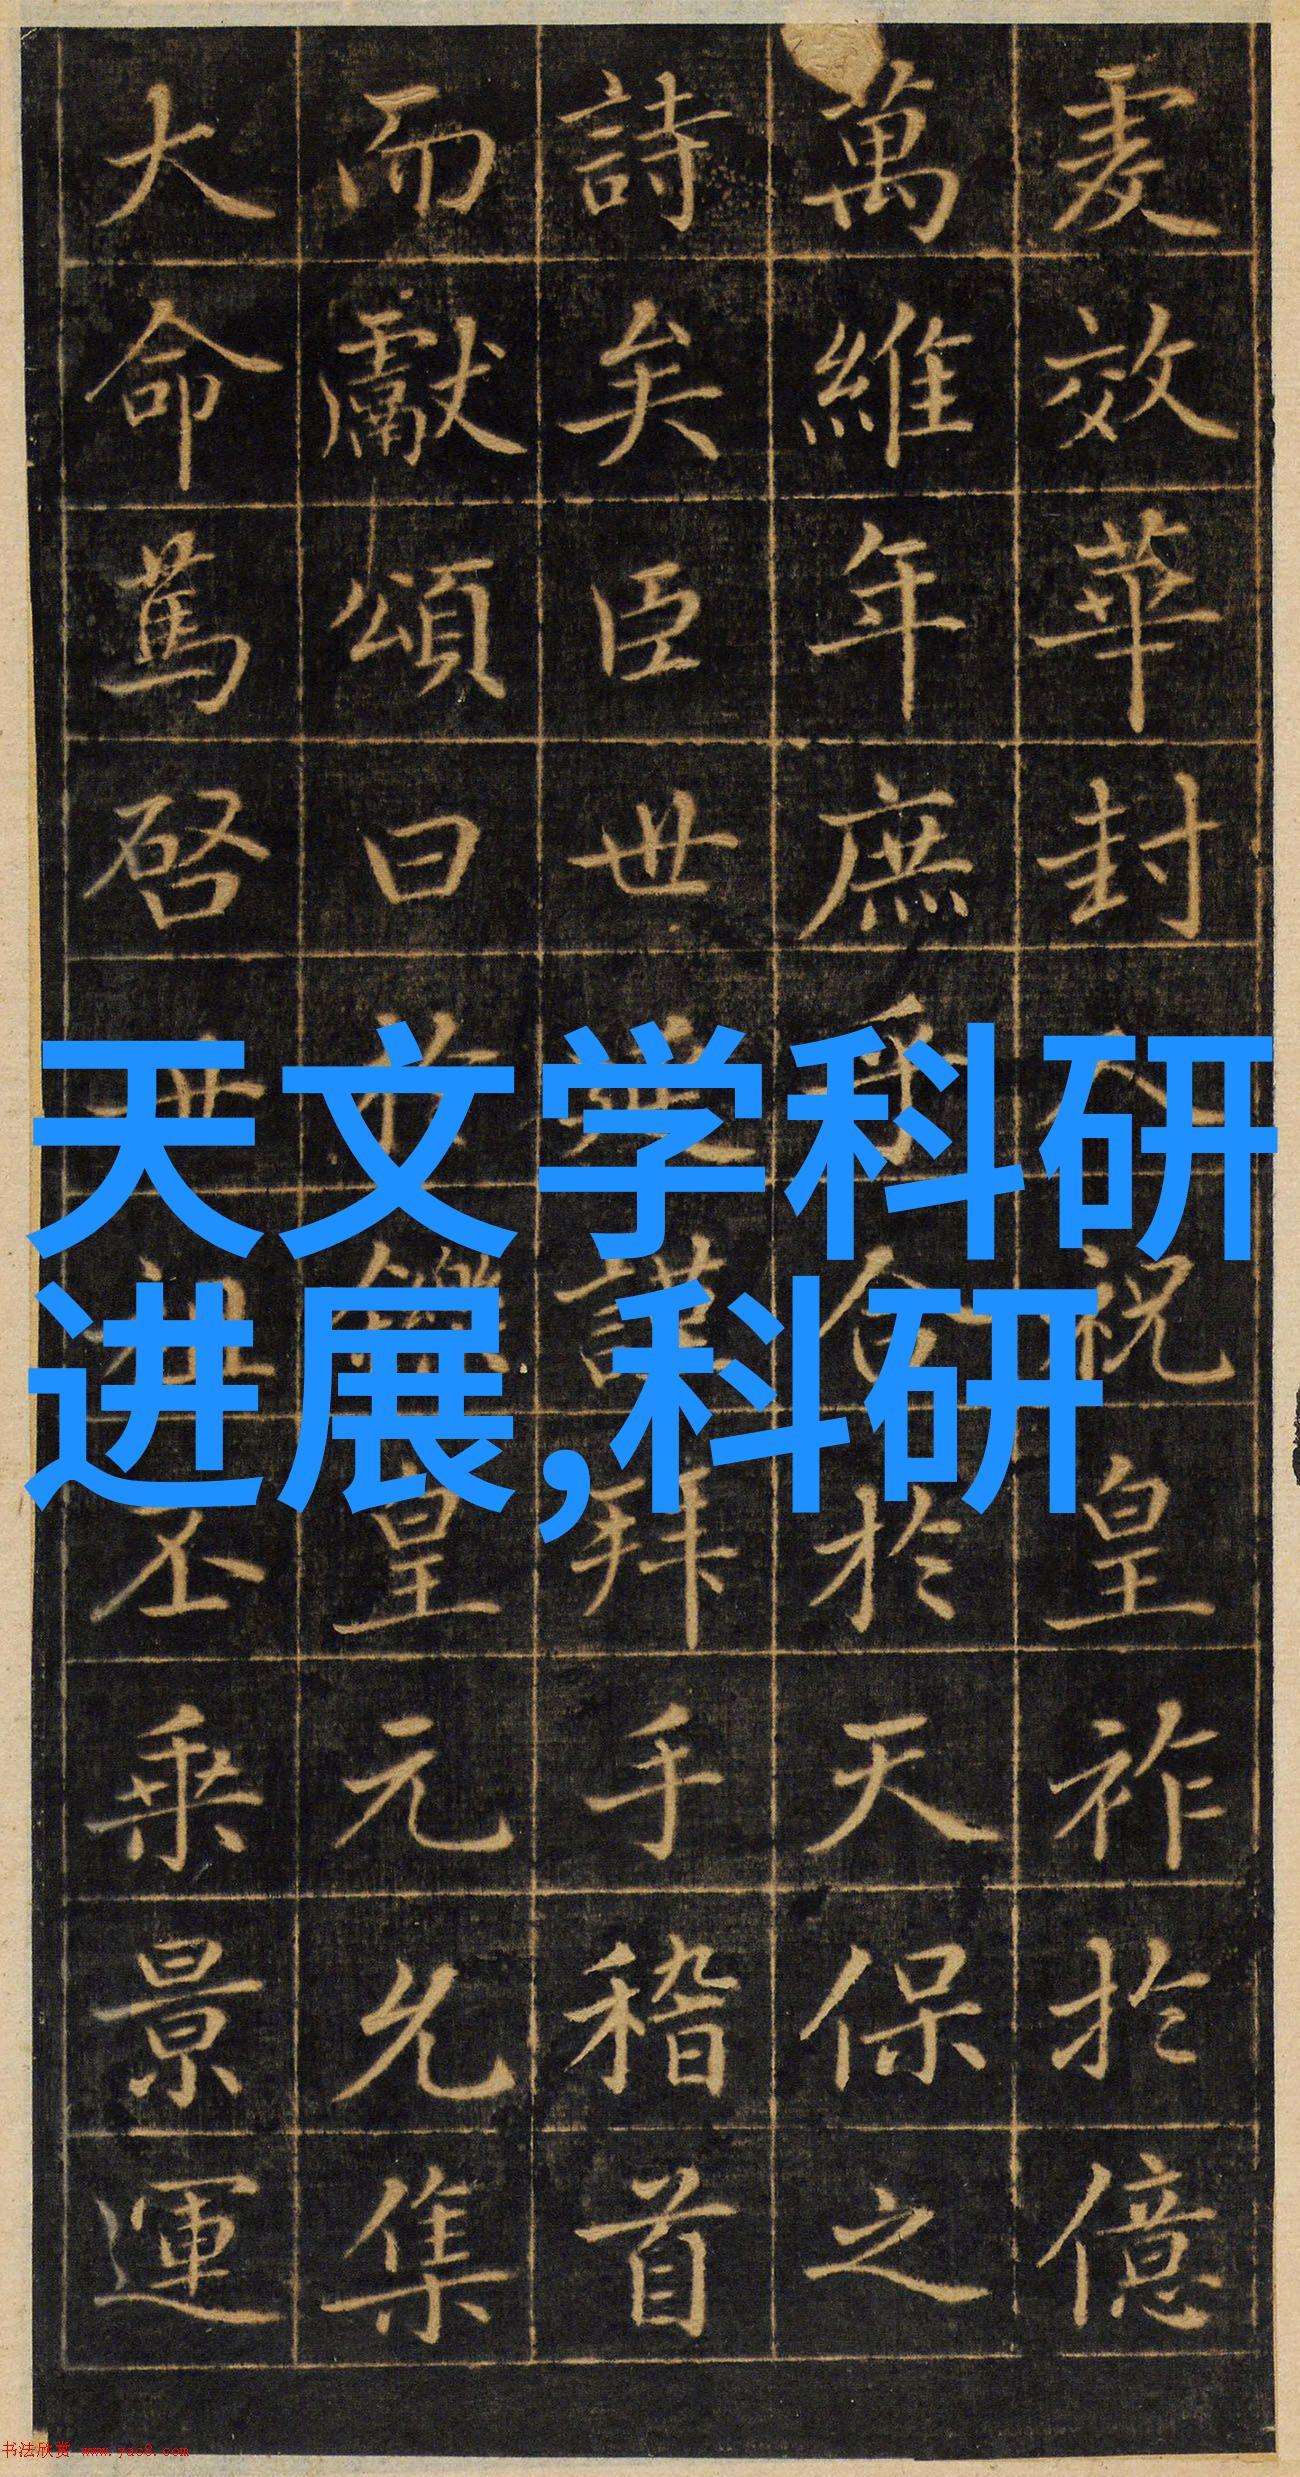 虔效華封人祝皇祚於億
萬維年庶乎合於天保之
詩矣臣世謹拜手稽首
而獻頌曰於鑠皇元允集
大命篤啓世祖丕乘景運
天文学科研
进展,科研
书法欣赏 www.yac8.com